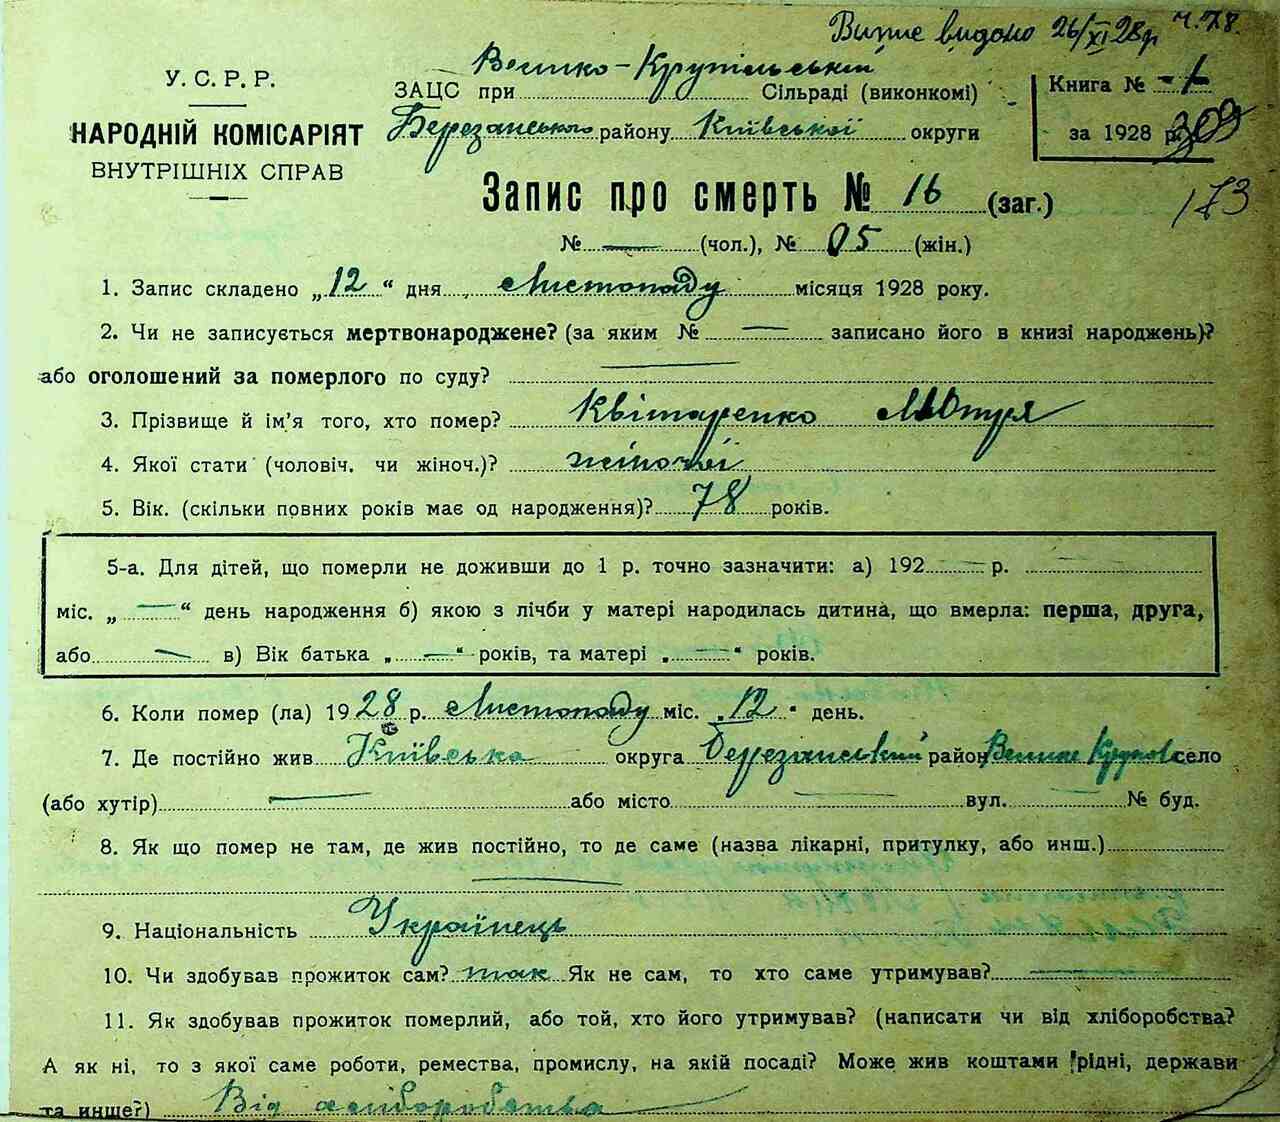 Витяг видано 26/XI 28р ч. 78.
У. С. Р. Р.
НАРОДНІЙ КОМІСАРІЯТ
ВНУТРІШНІХ СПРАВ
ЗАЦС при Велико-Крупільській Сільраді (виконкомі)
Березанського району Київської округи
Книга № 1
за 1928 р. 309
173
Запис про смерть № 16 (заг.)
№ — (чол.), № 05 (жін.)
1. Запис складено „12“ дня Листопаду місяця 1928 року.
2. Чи не записується мертвонароджене? (за яким № — записано його в книзі народжень)?
або оголошений за померлого по суду? —
3. Прізвище й ім'я того, хто помер? Квітаренко Мотря
4. Якої стати (чоловіч. чи жіноч.)? жіночої
5. Вік. (скільки повних років має од народження)? 78 років.
5-а. Для дітей, що померли не доживши до 1 р. точно зазначити: а) 192 — р. —
міс. „—“ день народження б) якою з лічби у матері народилась дитина, що вмерла: перша, друга,
або — в) Вік батька „—“ років, та матері „—“ років.
6. Коли помер (ла) 1928 р. Листопаду міс. „12“ день.
7. Де постійно жив Київська округа Березанський район Велике село
(або хутір) — або місто — вул. — № буд.
8. Як що помер не там, де жив постійно, то де саме (назва лікарні, притулку, або инш.)
—
9. Національність Українець
10. Чи здобував прожиток сам? так Як не сам, то хто саме утримував? —
11. Як здобував прожиток померлий, або той, хто його утримував? (написати чи від хліборобства?
А як ні, то з якої саме роботи, ремества, промислу, на якій посаді? Може жив коштами рідні, держави
та инше?) Від хліборобства